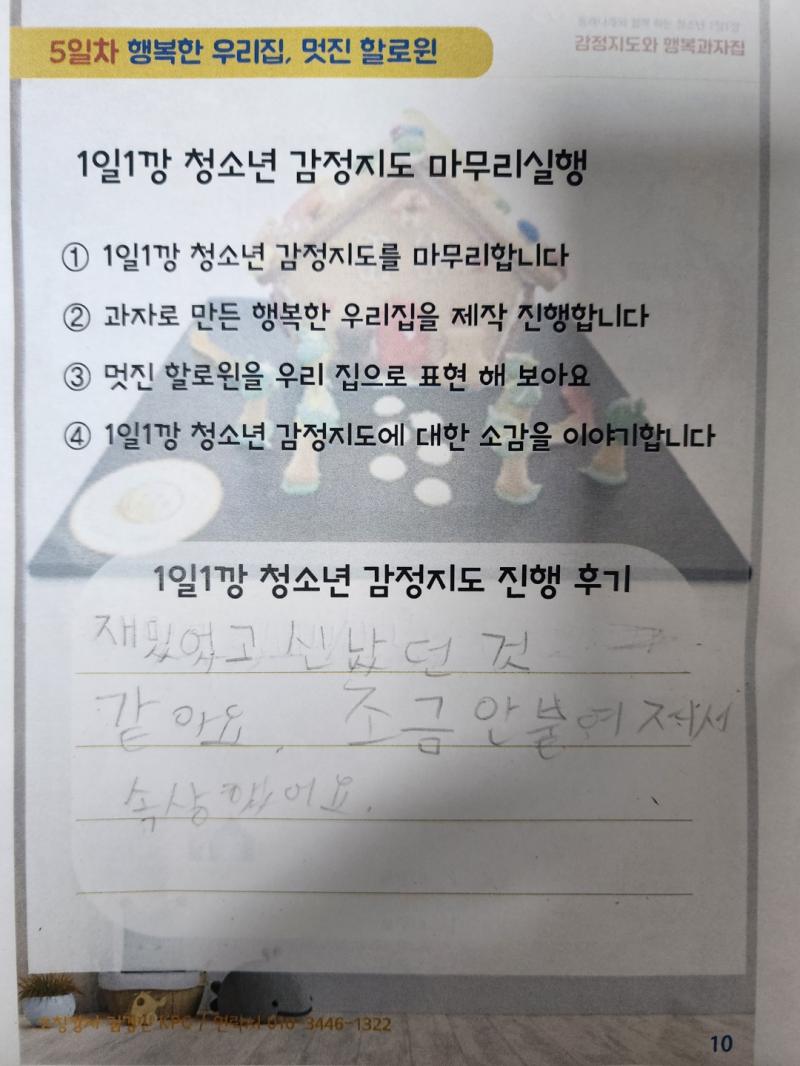 5일차 행복한 우리집, 멋진 할로윈
감정지도와 행복과자집
1일1깡 청소년 감정지도 마무리실행
① 1일1깡 청소년 감정지도를 마무리합니다
② 과자로 만든 행복한 우리집을 제작 진행합니다
③ 멋진 할로윈을 우리 집으로 표현 해 보아요
④ 1일1깡 청소년 감정지도에 대한 소감을 이야기합니다
1일1깡 청소년 감정지도 진행 후기
재밌었고 신났던 것
같아요. 조금 안 붙여져서
속상했어요.
KPC / 010-3446-1322
10